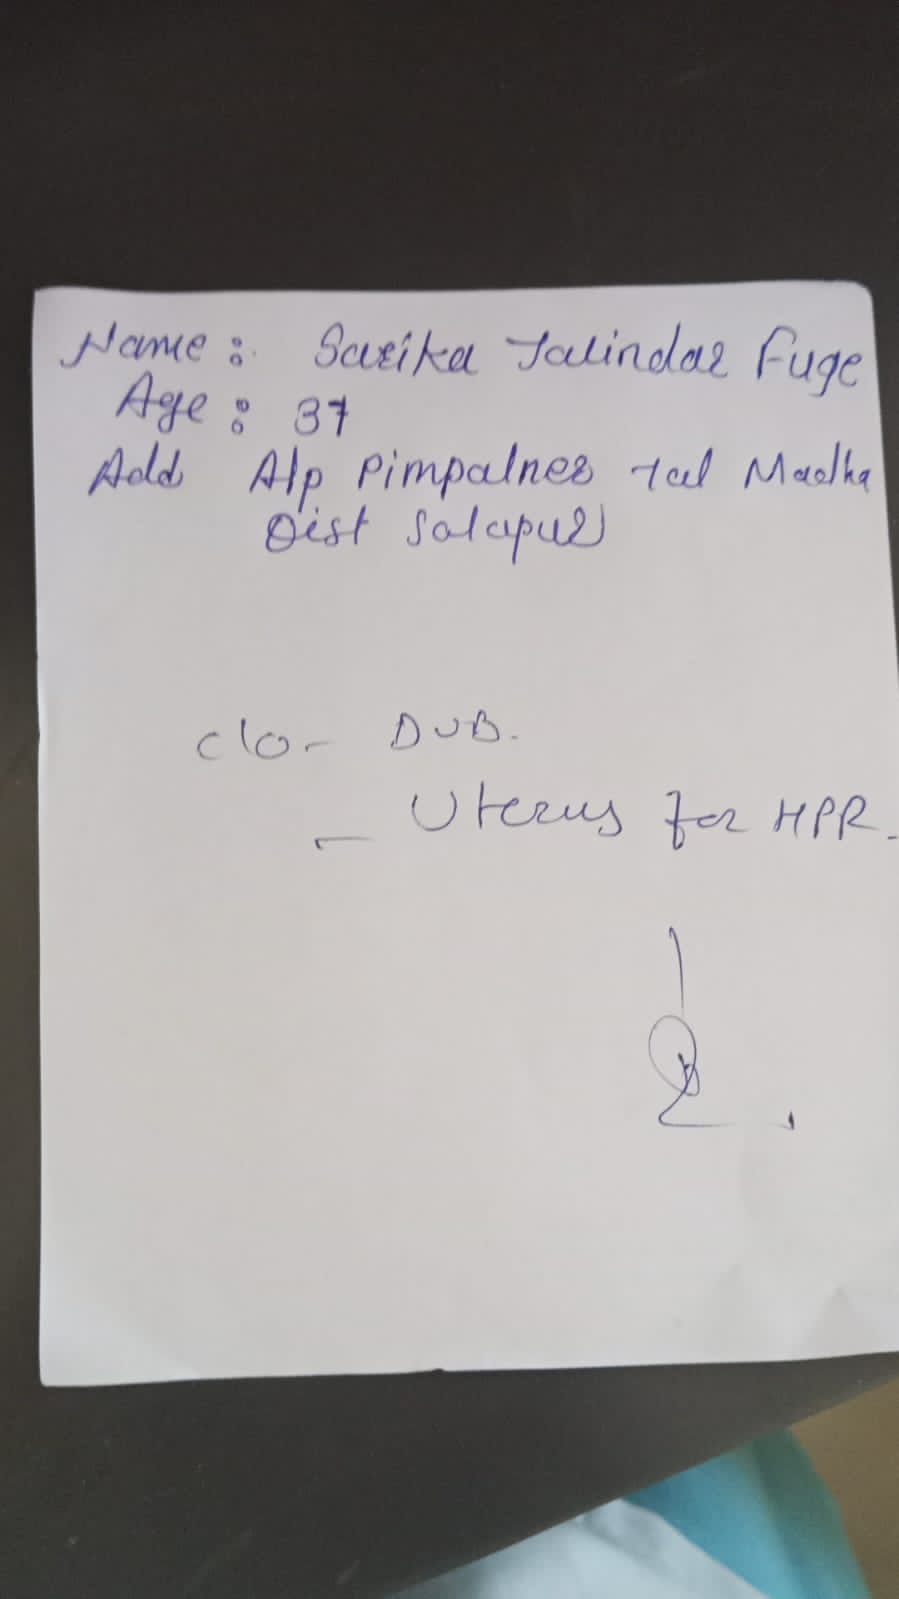 Name : Sarika Jalindar Fuge
Age : 37
Add A/p Pimpalner tal Madha
Dist Solapur
c/o - DUB.
- Uterus for HPR.